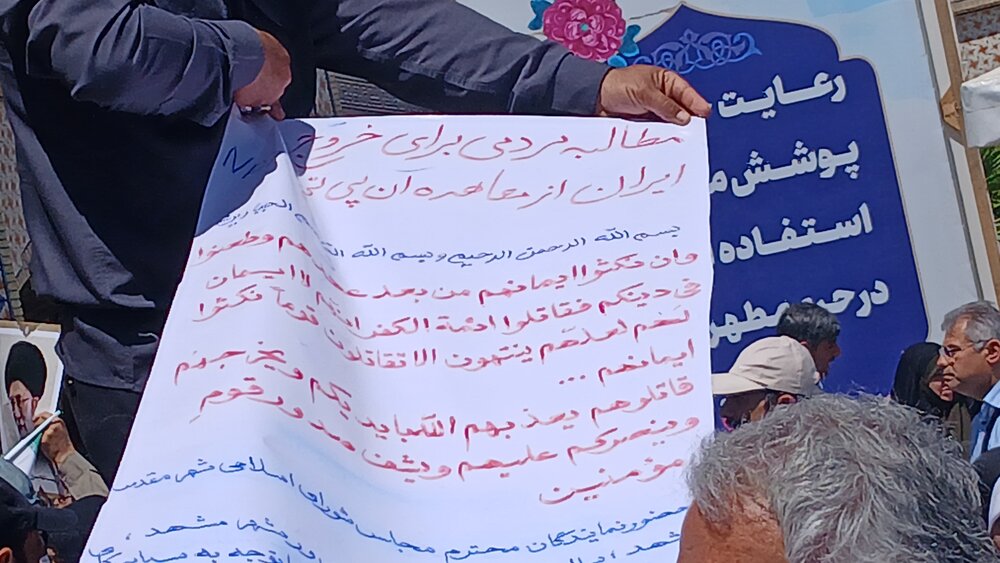 مطالبه مردمی برای خروج
ایران از معاهده ان پی تی
بسم الله الرحمن الرحیم و بسم الله
وان نکثوا ایمانهم من بعد عهدهم وطعنوا
فی دینکم فقاتلوا ائمة الکفر انهم لا ایمان
لهم لعلهم ینتهون الا تقاتلون قوماً نکثوا
ایمانهم ...
قاتلوهم یعذبهم الله بایدیکم ویخزهم
وینصرکم علیهم ویشف صدور قوم
مؤمنین
حضور نمایندگان محترم مجلس شورای اسلامی شهر مقدس
رعایت
پوشش
استفاده
در حرم مطهر